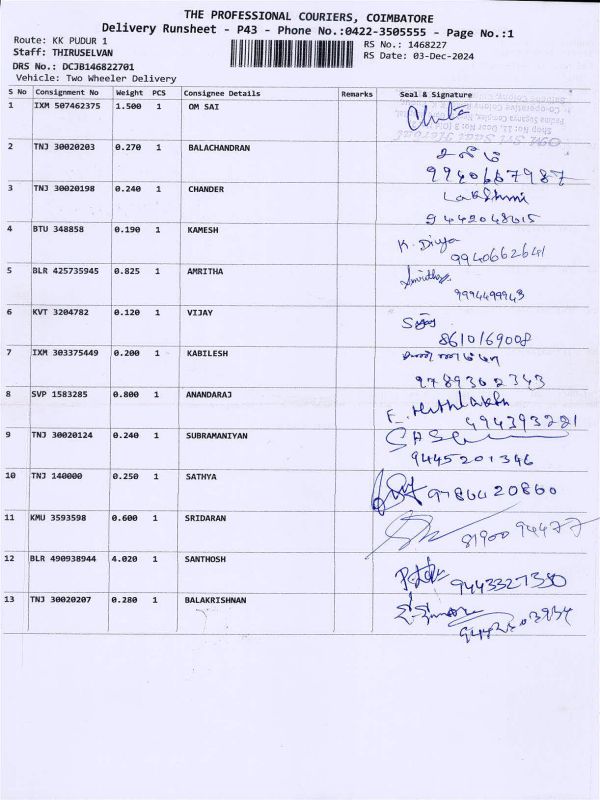 THE PROFESSIONAL COURIERS, COIMBATORE
Delivery Runsheet - P43 - Phone No.:0422-3505555 - Page No.:1
Route: KK PUDUR 1
RS No.: 1468227
Staff: THIRUSELVAN
RS Date: 03-Dec-2024
DRS No.: DCJB146822701
Vehicle: Two Wheeler Delivery
S No Consignment No Weight PCS Consignee Details Remarks Seal & Signature
1 IXM 507462375 1.500 1 OM SAI
2 TNJ 30020203 0.270 1 BALACHANDRAN
9940667987
3 TNJ 30020198 0.240 1 CHANDER Lakshmi
9442048615
4 BTU 348858 0.190 1 KAMESH K. Divya
9940662641
5 BLR 425735945 0.825 1 AMRITHA
9994499943
6 KVT 3204782 0.120 1 VIJAY
8610169008
7 IXM 303375449 0.200 1 KABILESH
9789302343
8 SVP 1583285 0.800 1 ANANDARAJ
9 TNJ 30020124 0.240 1 SUBRAMANIYAN
9445201346
10 TNJ 140000 0.250 1 SATHYA
11 KMU 3593598 0.600 1 SRIDARAN 81900 94477
12 BLR 490938944 4.020 1 SANTHOSH
13 TNJ 30020207 0.280 1 BALAKRISHNAN